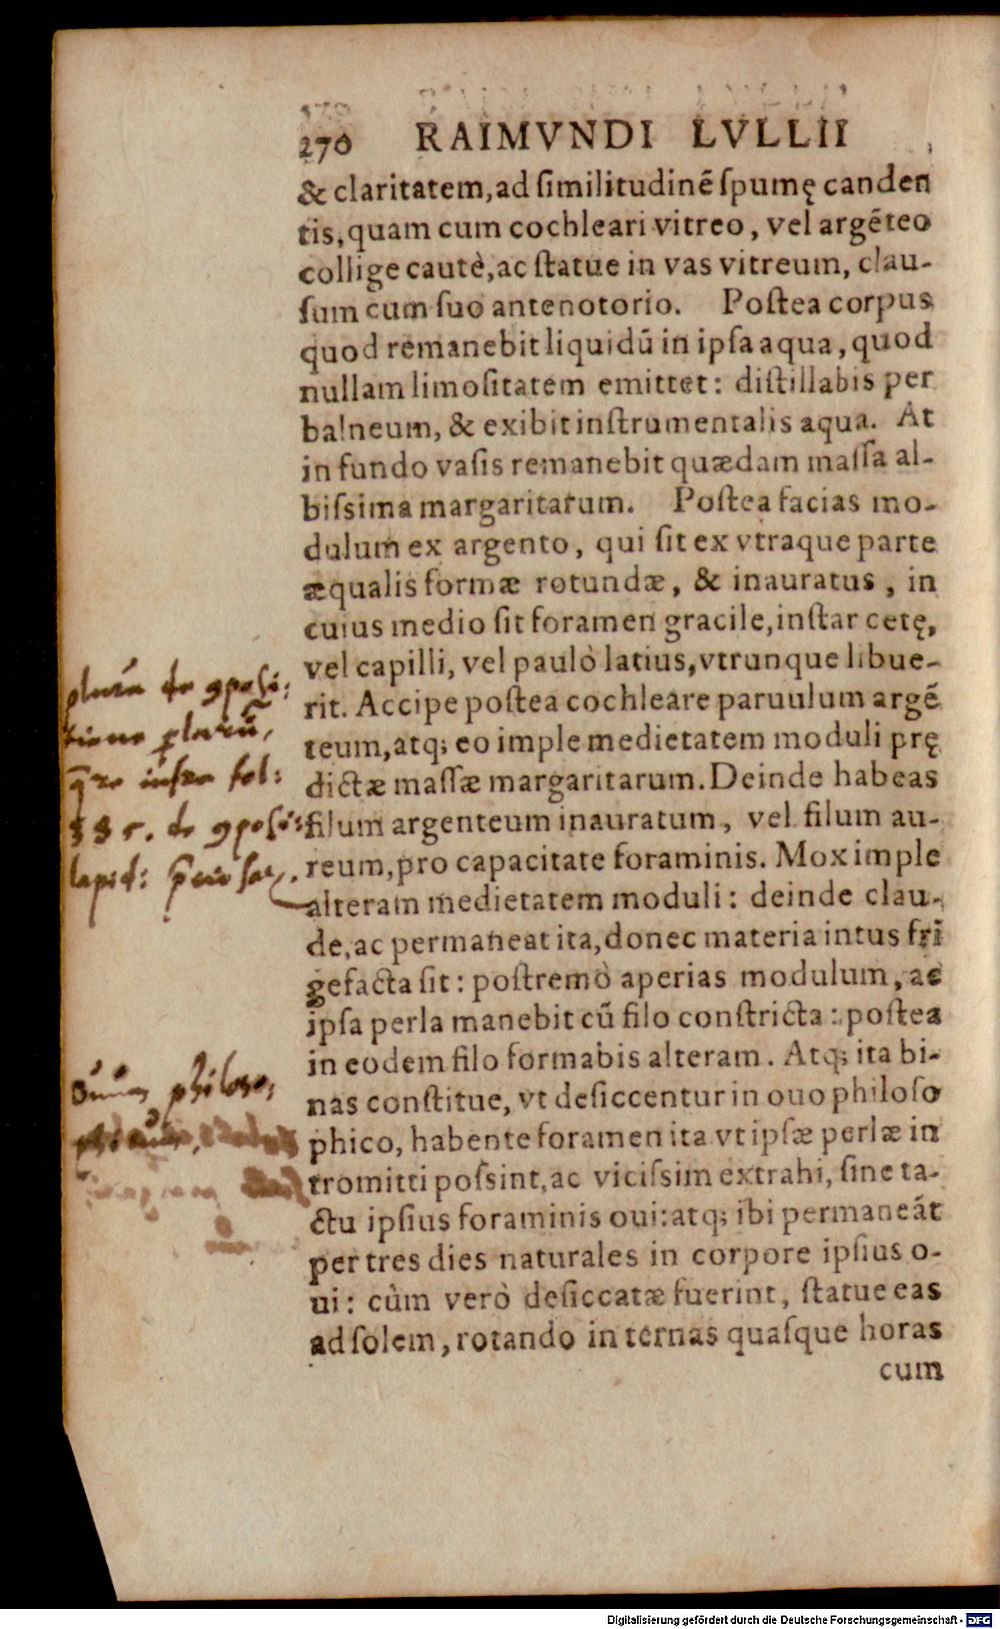 270 RAIMVNDI LVLLII
& claritatem, ad ſimilitudinẽ ſpumę canden
tis, quam cum cochleari vitreo, vel argẽteo
collige cautè, ac ſtatue in vas vitreum, clau-
ſum cum ſuo antenotorio. Poſtea corpus
quod remanebit liquidũ in ipſa aqua, quod
nullam limoſitatem emittet: diſtillabis per
balneum, & exibit inſtrumentalis aqua. At
in fundo vaſis remanebit quædam maſſa al-
biſsima margaritarum. Poſtea facias mo-
dulum ex argento, qui ſit ex vtraque parte
æqualis formæ rotundæ, & inauratus, in
cuius medio ſit foramen gracile, inſtar cetę,
vel capilli, vel paulò latius, vtrunque libue-
rit. Accipe poſtea cochleare paruulum argẽ
teum, atq; eo imple medietatem moduli prę
dictæ maſſæ margaritarum. Deinde habeas
filum argenteum inauratum, vel filum au-
reum, pro capacitate foraminis. Mox imple
alteram medietatem moduli: deinde clau-
de, ac permaneat ita, donec materia intus fri
gefacta ſit: poſtremò aperias modulum, ac
ipſa perla manebit cũ filo conſtricta: poſtea
in eodem filo formabis alteram. Atq; ita bi-
nas conſtitue, vt deſiccentur in ouo philoſo
phico, habente foramen ita vt ipſæ perlæ in
tromitti poſsint, ac viciſsim extrahi, ſine ta-
ctu ipſius foraminis oui: atq; ibi permaneãt
per tres dies naturales in corpore ipſius o-
ui: cùm verò deſiccatæ fuerint, ſtatue eas
ad ſolem, rotando in ternas quaſque horas
cum
de
infra fol:
335. de
lapid:
philoso,
Digitalisierung gefördert durch die Deutsche Forschungsgemeinschaft - DFG